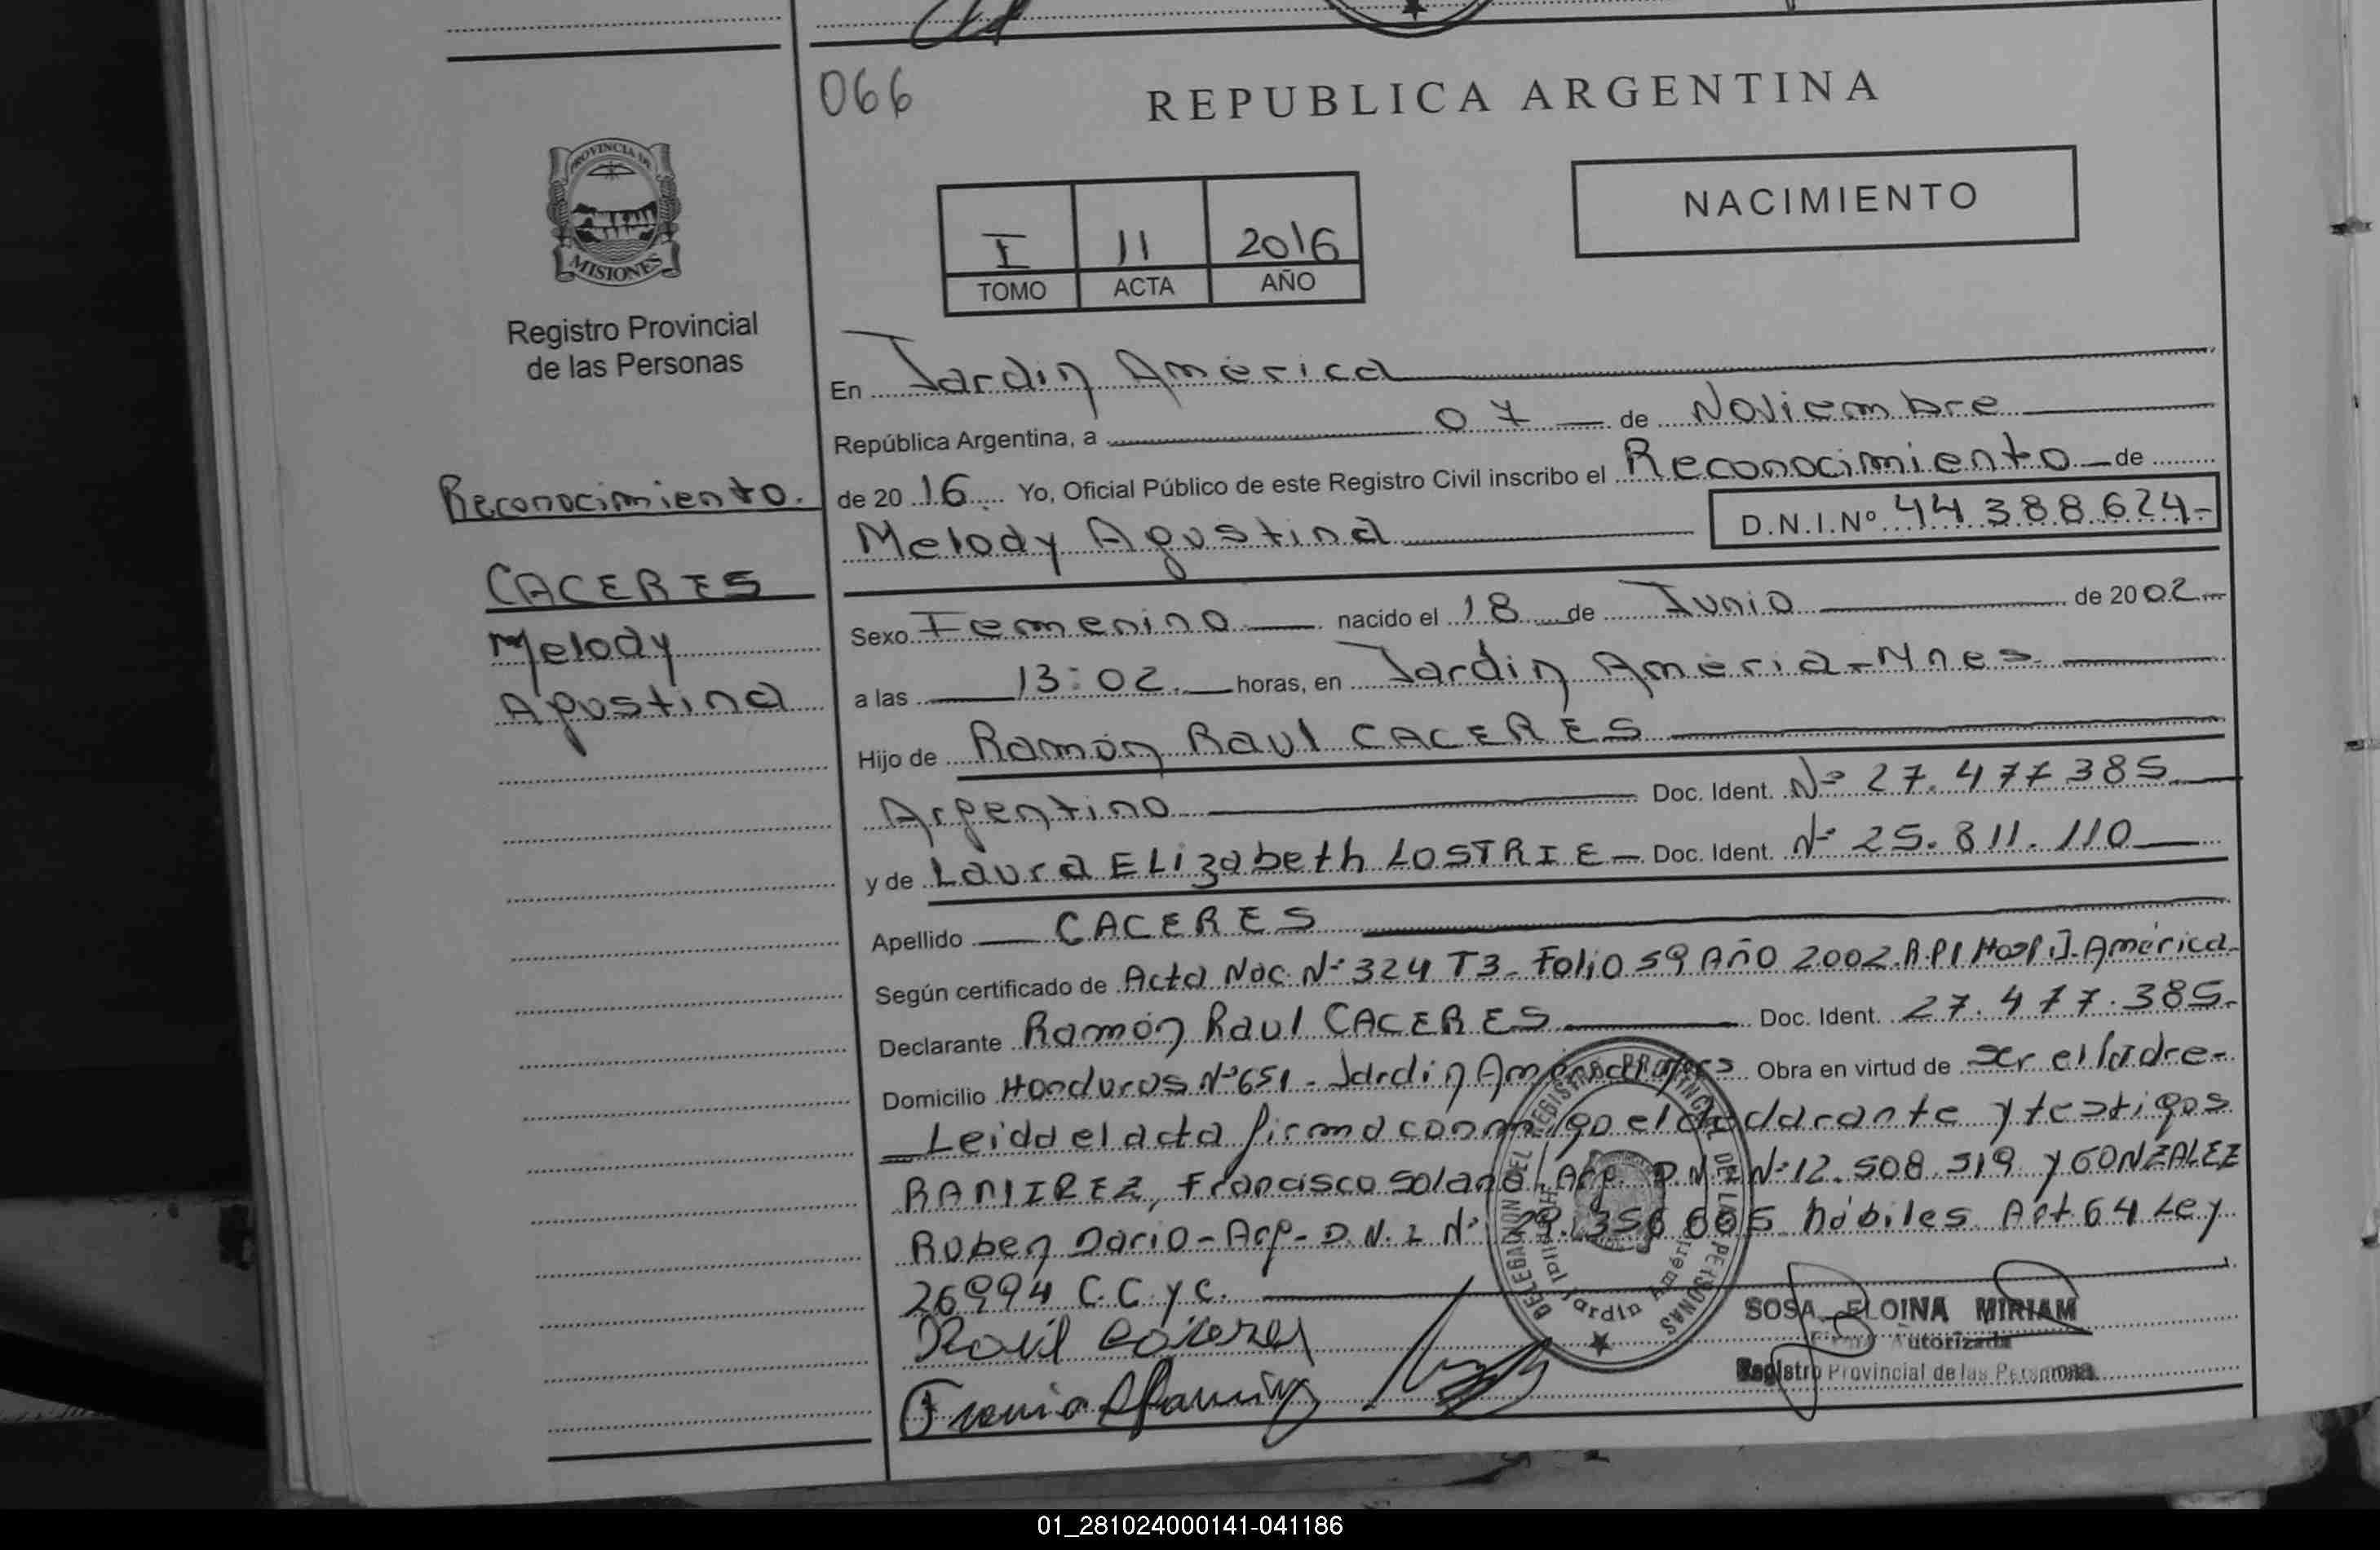 066
REPUBLICA ARGENTINA
PROVINCIA DE
MISIONES
Registro Provincial
de las Personas
NACIMIENTO
I 11 2016
TOMO ACTA AÑO
En Jardin América
República Argentina, a 07 de Noviembre
Reconocimiento.
de 20 16 Yo, Oficial Público de este Registro Civil inscribo el Reconocimiento de
Melody Agustina D.N.I.Nº 44 388 624-
CACERES
Melody
Agustina
Sexo Femenino nacido el 18 de Junio de 20 02
a las 13:02 horas, en Jardin Améria-Mnes
Hijo de Ramón Raul CACERES
Argentino Doc. Ident. Nº 27.477 385
y de Laura ELizabeth LOSTRIE Doc. Ident. Nº 25.811.110
Apellido CACERES
Según certificado de Acta Nac. Nº 324 T3 - Folio 59 Año 2002. R.P Hosp J. América
Declarante Ramón Raul CACERES Doc. Ident. 27.477.385.
Domicilio Honduras Nº 651 - Jardin América Obra en virtud de ser el Padre-
Leida el acta firma conmigo el declarante y testigos
RAMIREZ, Francisco Solano, Arg. D.N.I Nº 12.508.519 y GONZALEZ
Ruben Dario - Arg - D.N.I Nº hábiles Art 64 Ley
26994 C.C y C.
Raul Cáceres
DELEGACION DEL REGISTRO PROVINCIAL DE LAS PERSONAS
Jardín América
SOSA, ELOINA MIRIAM
Firma Autorizada
Registro Provincial de las Personas
01_281024000141-041186